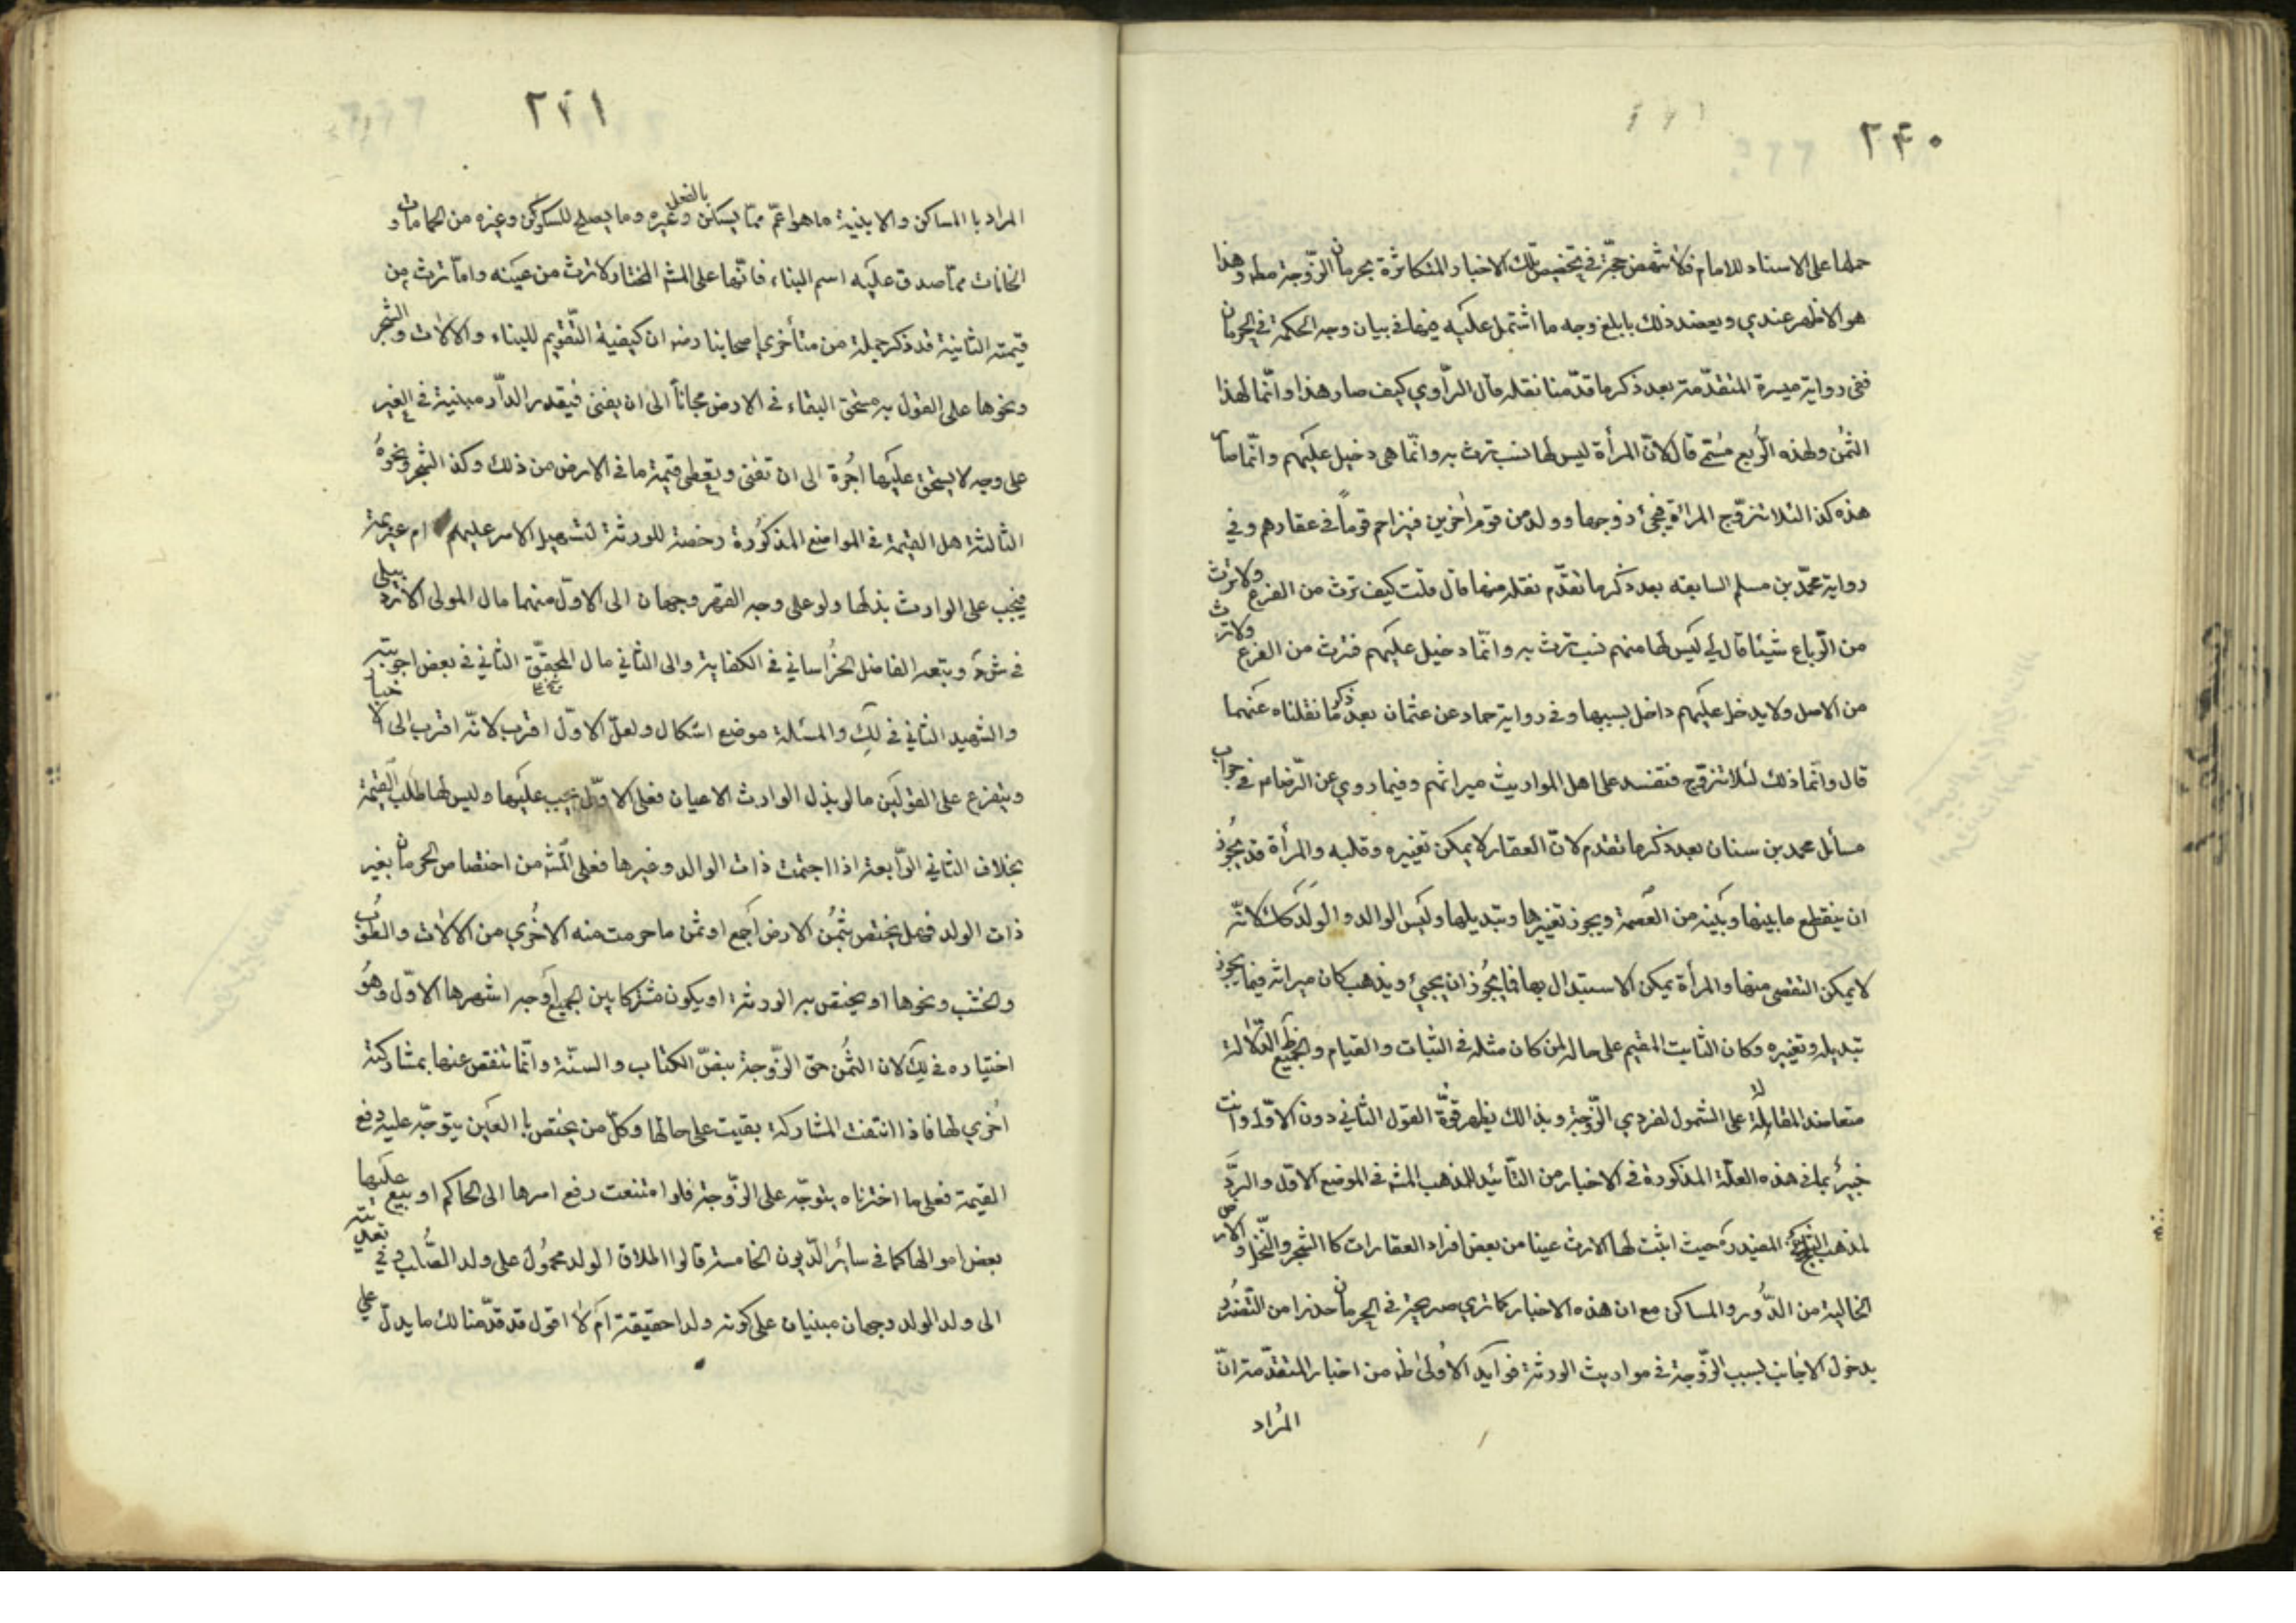 ٢٤٠
حملها على الاسناد للامام فلا تنهض حجّة في تخصيص تلك الاخبار المتكاثرة بحرمان الزّوجة مطه وهذا
هو الاظهر عندي ويعضد ذلك بابلغ وجه ما اشتمل عليه منها في بيان وجه الحكمة في الحرمان
ففى رواية ميسرة المتقدّمة بعد ذكر ما قدّمنا نقله قال الرّاوي كيف صار هذا وانّما لهذا
الثمُن ولهذه الرّبع مُسمّى قال لانّ المرأة ليس لها نسب ترث به وانّما هي دخيل عليهم وانّما صار
هذه كذا لئلا تتزوّج المرأة فيجئ زوجها وولد من قوم اٰخرين فيزاحم قوماً في عقارهم وفي
رواية محمّد بن مسلم السابقه بعد ذكر ما تقدّم نقله منها قال قلت كيف ترث من الفرع ولا ترث
من الرّباع شيئا قال لي ليس لها منهم نسب ترث به وانّما دخيل عليهم فترث من الفرع ولا ترث
من الاصل ولا يدخل عليهم داخل بسببها وفي رواية حماد عن عثمان بعد ذكر ما نقلناه عنهما
قال وانّما ذلك لئلا تتزوّج فتفسد على اهل المواريث ميراثهم وفيما روي عن الرّضام في جواب
مسائل محمد بن سنان بعد ذكر ما تقدم لانّ العقار لا يمكن تغييره وقلبه والمرأة قد يجُوز
ان ينقطع ما بينها وبينه من العصمة ويجوز تغييرها وتبديلها وليس الوالد والولد كك لانّه
لا يمكن التفصى منها والمرأة يمكن الاستبدال بها فما يجُوز ان يجيئ ويذهب كان ميراثه فيما يجوز
تبديله وتغييره وكان الثابت المقيم على حاله لمن كان مثله في الثبات والقيام والجميع ظاهر الدّلالة
متعاضد المقابلة لا على الشمول لفردي الزّوجة وبذالك يظهر قوّة القول الثاني دون الاوّل وانت
خبيرٌ بما في هذه العلّة المذكورة في الاخبار من التّأئيد للمذهب المشه في الموضع الاوّل والردّ
لمذهب الشيخ المفيد ره حيث اثبت لها الارث عينا من بعض افراد العقارات كا الشجر والنّخل والارض
الخالية من الدّور والمساكن مع ان هذه الاخبار كما تري صريحة في الحرمان حذرا من التّضرّر
بدخول الاجانب بسبب الزّوجة في مواريث الورثة فوايد الاُولىٰ ظه من اخبار المتقدّمة انّ
المُراد
٢٤١
المراد با المساكن والابنية ما هو اعمّ ممّا يسكن بالفعل وغيره وما يصلح للسكون وغيره من الحمامات و
الخانات ممّا صدق عليه اسم البناء فانّها على المشه المختار لا ترث من عينه وامّا ترث من
قيمته الثانية قد ذكر جملة من متأخري اصحابنا رضه ان كيفية التّقويم للبناء والالات والشجر
ونحوها على القول به مستحق البقاء في الارض مجاناً الى ان يفنى فيقدر الدّار مبنية في الغير
على وجه لا يستحق عليها اجُرة الى ان تفنى ويعطى قيمة ما في الارض من ذلك وكذا الشجر ونحوهُ
الثالثة هل القيمة في المواضع المذكورة رخصة للورثة لتسهيل الامر عليهم ام عزيمة
فيجب على الوارث بذلها ولو على وجه القهر وجهان الى الاوّل منهما مال المولى الاردبيلى
في شرد وتبعه الفاضل الخُراساني في الكفاية والى الثاني مال المحقّق الثاني في بعض اجوبته
والشهيد الثاني في لك والمسئلة موضع اشكال ولعلّ الاوّل اقرب لانّه اقرب الى الاخبار
ويتفرع على القولين ما لو بذل الوارث الاعيان فعلى الاوّل يجب عليها وليس لها طلب القيمة
بخلاف الثاني الرّابعة اذا اجتمت ذات الوالد وغيرها فعلى المشه من اختصاص الحرمان بغير
ذات الولد فهل يختص بثمُن الارض اجمع او ثمن ما حرمت منه الاخُري من الالات والطوب
والخشب ونحوها او يختص به الورثة او يكون مشتركا بين الجميع اوجه اشهرها الاوّل وهُو
اختياره في لك لان الثمُن حقّ الزّوجة بنصّ الكتاب والسنّة وانّما تنقص عنها بمشاركة
اخُري لها فاذا انتفت المشاركة بقيت على حالها وكلّ من يختص با العين يتوجّه عليه دفع
القيمة فعلى ما اخترناه يتوجّه على الزّوجة فلو امتنعت رفع امرها الى الحاكم او بيع عليها
بعض اموالها كما في سائر الدّيون الخامسة قالوا اطلاق الولد محمُول على ولد الصُّلب وفي تعديته
الى ولد الولد وجهان مبنيان على كونه ولدا حقيقة ام لا اقول قد قدّمنا لك ما يدلّ على